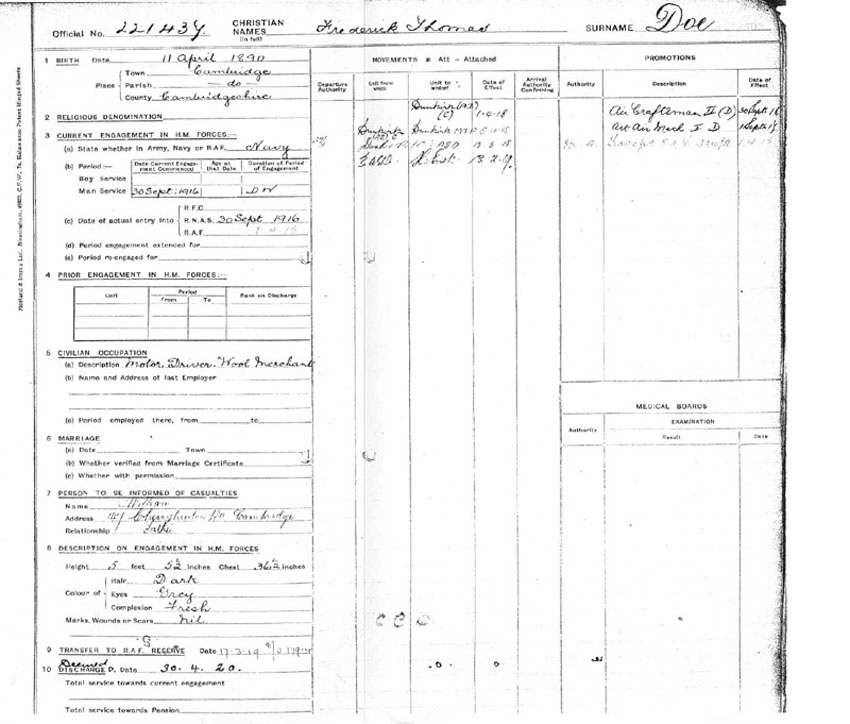 Official No. 221437. CHRISTIAN NAMES (in full) Frederick Thomas SURNAME Doe
1 BIRTH Date 11 April 1890
Place Town Cambridge
Parish — do —
County Cambridgeshire
2 RELIGIOUS DENOMINATION
3 CURRENT ENGAGEMENT IN H.M. FORCES:—
(a) State whether in Army, Navy or R.A.F. Navy
(b) Period:— Date Current Engagement Commenced Age at that Date Duration of Period of Engagement
Boy Service
Man Service 30 Sept: 1916
(c) Date of actual entry into R.F.C.
R.N.A.S. 30 Sept 1916
R.A.F. 1 4 18
(d) Period engagement extended for
(e) Period re-engaged for
4 PRIOR ENGAGEMENT IN H.M. FORCES:—
Unit Period Rank on Discharge
From To
5 CIVILIAN OCCUPATION
(a) Description Motor Driver. Wool Merchant
(b) Name and Address of last Employer
(c) Period employed there, from to
6 MARRIAGE
(a) Date Town
(b) Whether verified from Marriage Certificate
(c) Whether with permission
7 PERSON TO BE INFORMED OF CASUALTIES
Name William
Address Cambridge
Relationship Father
8 DESCRIPTION ON ENGAGEMENT IN H.M. FORCES
Height 5 feet inches Chest inches
Colour of Hair Dark
Eyes Grey
Complexion Fresh
Marks, Wounds or Scars nil
9 TRANSFER TO R.A.F. RESERVE Date 17.3.19
10 Deemed DISCHARGED. Date 30. 4. 20.
Total service towards current engagement
Total service towards Pension
MOVEMENTS * Att - Attached
Departure Authority Unit from which Unit to which Date of Effect Arrival Authority Confirming
Dunkirk 1-4-18
Dunkirk Dunkirk
PROMOTIONS
Authority Description Date of Effect
Air Craftsman II (D) 30 Sept 16
Act Air Mech I D 1 Sept 17
MEDICAL BOARDS
Authority EXAMINATION
Result Date